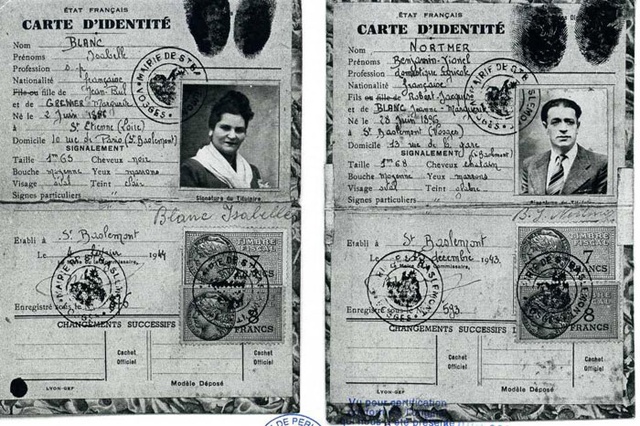 ÉTAT FRANÇAIS
CARTE D'IDENTITÉ
Nom BLANC
Prénoms Isabelle
Profession s.p.
Nationalité française
Fils ou fille de Jean-Paul
et de GRENIER Marguerite
Né le 2 juin 1896
à St Etienne (Loire)
Domicile 10 rue de Paris (St Baslemont)
SIGNALEMENT
Taille 1m65 Cheveux noir
Bouche moyenne Yeux marrons
Visage oval Teint clair
Signes particuliers "
MAIRIE DE
VOSGES
Signature du Titulaire
Blanc Isabelle
Etabli à St Baslemont
Le juin 1944
Commissaire,
Enregistré sous le
TIMBRE FISCAL
FRANCS
8 FRANCS
CHANGEMENTS SUCCESSIFS
Cachet Officiel
Cachet Officiel
LYON-GEF
Modèle Déposé
ÉTAT FRANÇAIS
CARTE D'IDENTITÉ
Nom NORTMER
Prénoms Benjamin-Lionel
Profession domestique agricole
Nationalité française
Fils ou fille de Robert Jacques
et de BLANC Jeanne-Marguerite
Né le 28 juin 1896
à St Baslemont (Vosges)
Domicile 13 rue de la gare
SIGNALEMENT (St Baslemont)
Taille 1m68 Cheveux chatain
Bouche moyenne Yeux marrons
Visage oval Teint
Signes particuliers "
MAIRIE DE
Signature du Titulaire
Etabli à St Baslemont
Le décembre 1943
Commissaire,
Enregistré sous 593.
TIMBRE FISCAL
7 FRANCS
8 FRANCS
CHANGEMENTS SUCCESSIFS
Cachet Officiel
Cachet Officiel
LYON-GEF
Modèle Déposé
Vu pour certification